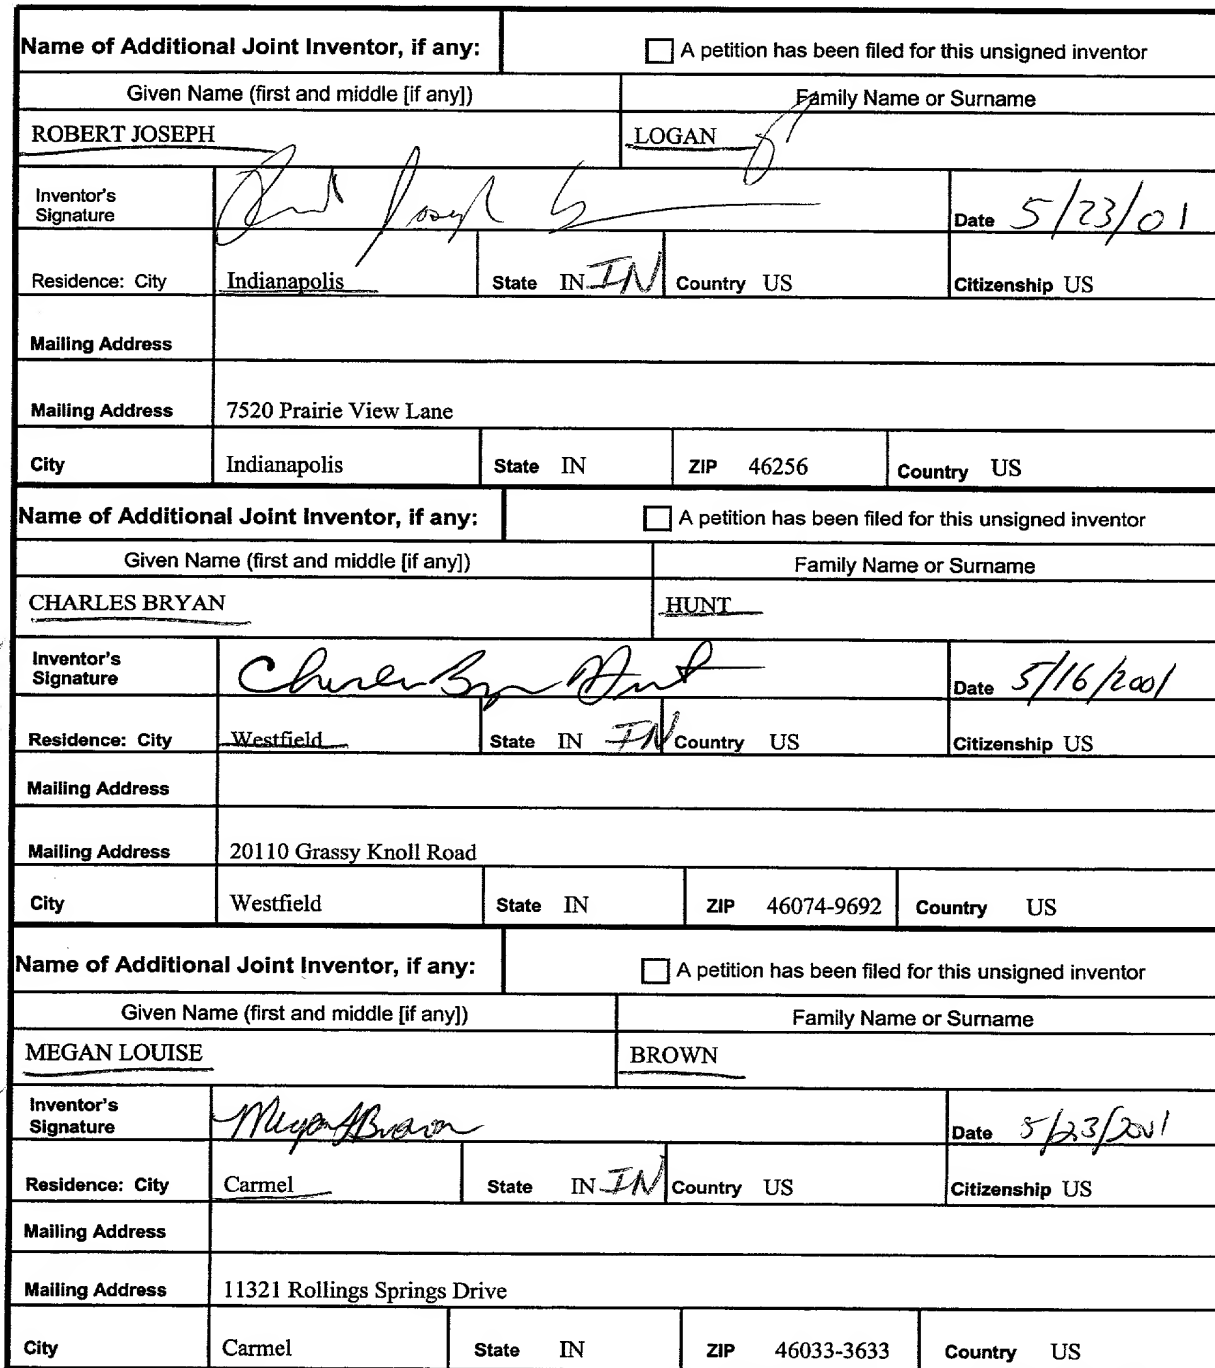 Name of Additional Joint Inventor, if any: A petition has been filed for this unsigned inventor
Given Name (first and middle [if any]) Family Name or Surname
ROBERT JOSEPH LOGAN
Inventor's
Signature Joseph Date 5/23/01
Residence: City Indianapolis State IN IN Country US Citizenship US
Mailing Address
Mailing Address 7520 Prairie View Lane
City Indianapolis State IN ZIP 46256 Country US
Name of Additional Joint Inventor, if any: A petition has been filed for this unsigned inventor
Given Name (first and middle [if any]) Family Name or Surname
CHARLES BRYAN HUNT
Inventor's
Signature Charles Bryan Hunt Date 5/16/2001
Residence: City Westfield State IN IN Country US Citizenship US
Mailing Address
Mailing Address 20110 Grassy Knoll Road
City Westfield State IN ZIP 46074-9692 Country US
Name of Additional Joint Inventor, if any: A petition has been filed for this unsigned inventor
Given Name (first and middle [if any]) Family Name or Surname
MEGAN LOUISE BROWN
Inventor's
Signature Megan L Brown Date 5/23/2001
Residence: City Carmel State IN IN Country US Citizenship US
Mailing Address
Mailing Address 11321 Rollings Springs Drive
City Carmel State IN ZIP 46033-3633 Country US